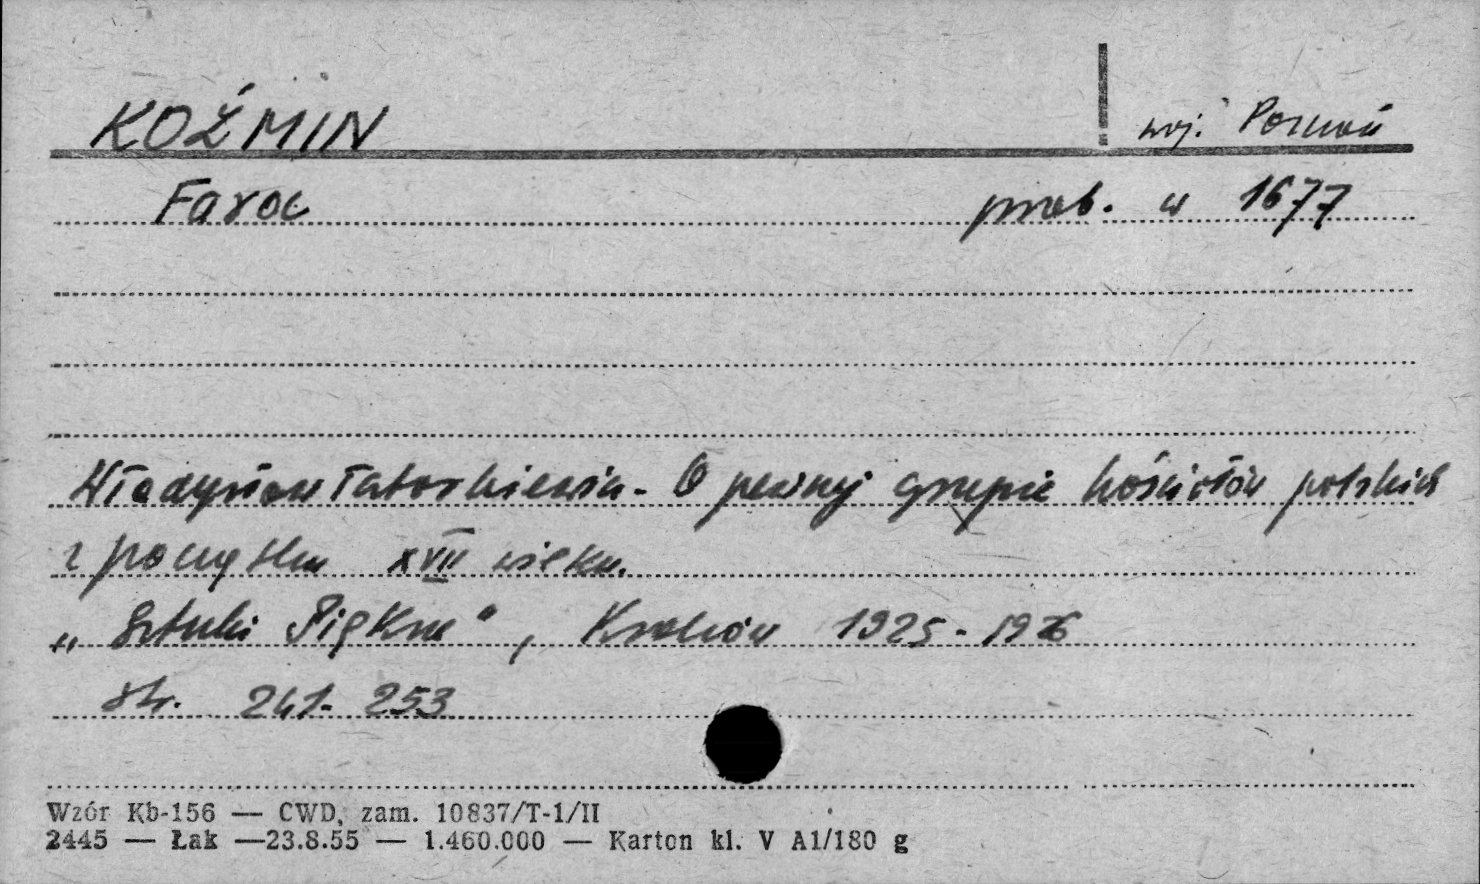 KOŹMIN woj. Poznań
Fara przeb. w 1677
Władysław Tatarkiewicz - O pewnej grupie kościołów polskich
z początku XVII wieku.
„Sztuki Piękne", Kraków 1925-1926
str. 241-253
Wzór Kb-156 — CWD, zam. 10837/T-1/II
2445 — Łak —23.8.55 — 1.460.000 — Karton kl. V A1/180 g